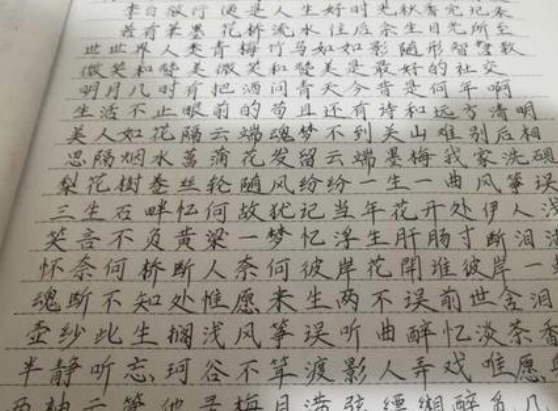 来白敬行便是人生好时光秋香完北来
若有苹墨花桥流水住后余生目光所至
世世界人类青梅竹马如如影随形智慧数
微笑和赞美微笑和赞美是最好的社交
明月几时有把酒问青天今昔是何年啊
生活不止眼前的苟且还有诗和远方清明
美人如花隔云端魂梦不到关山难别后相
思隔烟水菖蒲花发留云端墨梅我家洗砚
梨花树卷丝轮随风纷纷一生一曲风筝误
三生石畔忆何故犹记当年花开处伊人浅
笑言不负黄梁一梦忆浮生肝肠寸断泪
怀奈何桥断人奈何彼岸花開谁彼岸一
魂断不知处惟愿来生两不误前世含泪
壶纱此生搁浅风筝误听曲醉忆淡茶香
半静听忘珂谷不笨渡影人弄戏唯愿
梅月满弦缥缃醉